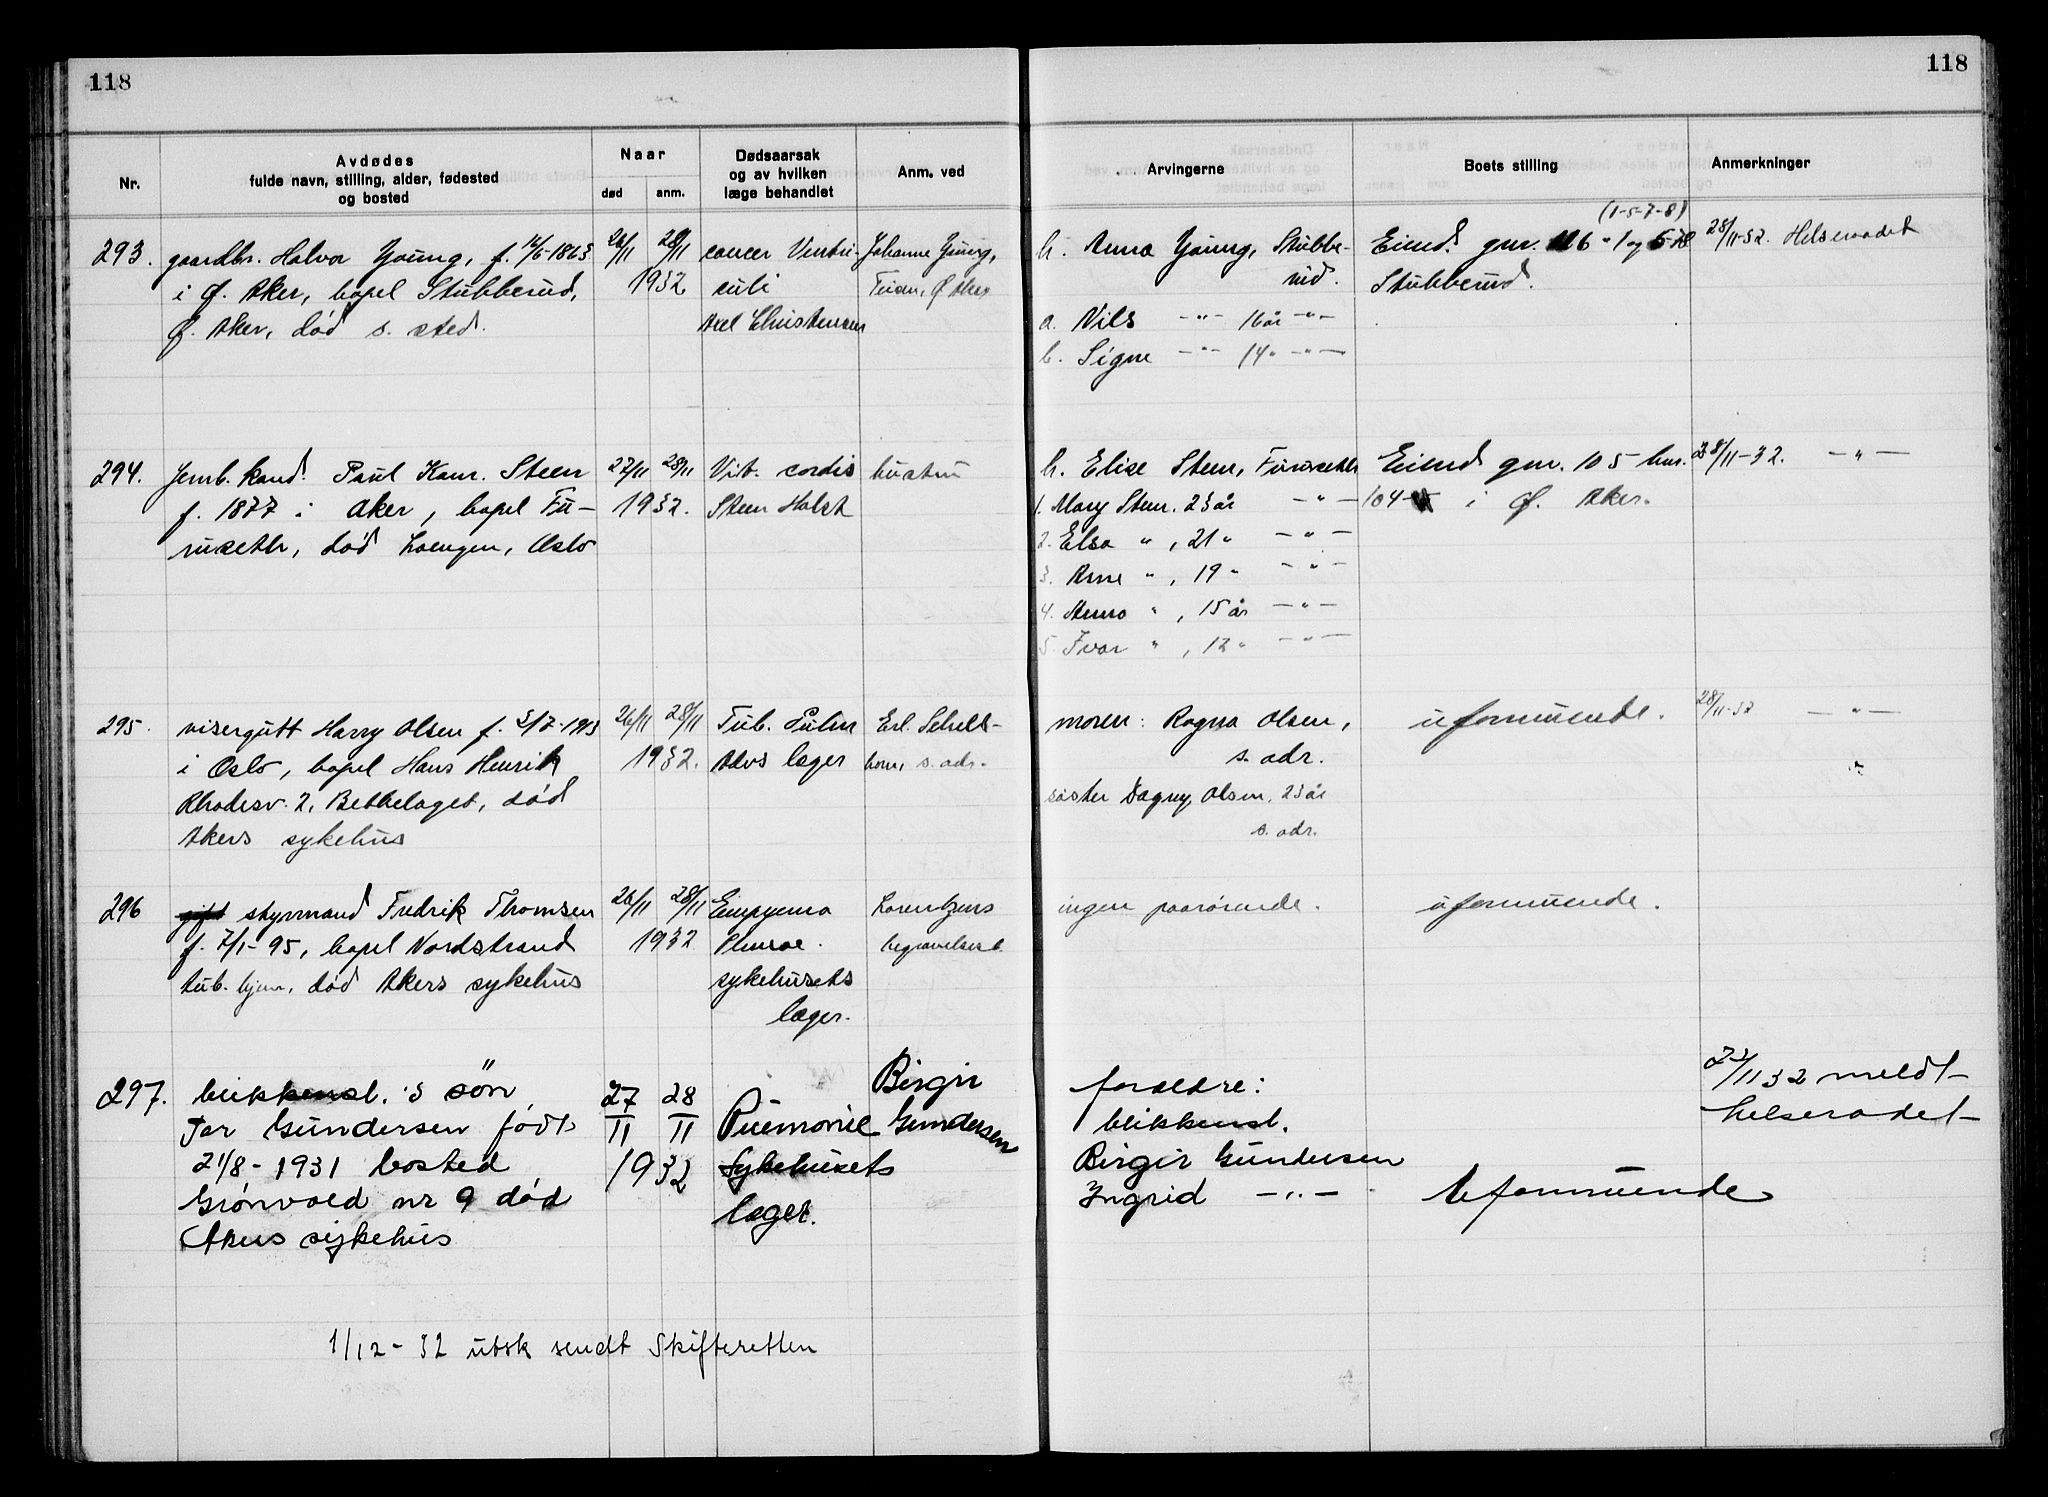 118
118
Nr.
Avdødes
fulde navn, stilling, alder, fødested
og bosted
Naar
død
anm.
Dødsaarsak
og av hvilken
læge behandlet
Anm. ved
Arvingerne
Boets stilling
Anmerkninger
293. gaardbr. Halvor Young, f. 14/6-1863
i Ø. Aker, bopel Stubberud,
Ø. Aker, død s. sted.
26/11 28/11
1932
cancer Ventri-
culi
Axel Christensen
Johanne Young,
Teisen, Ø Aker
h. Anna Young, Stubbe-
rud.
a. Nils -"- 16 år -"-
b. Signe -"- 14 " -"-
(1-5-7-8)
Eiend. gnr. 116 " 1 og 5
Stubberud.
28/11-32. Helseraadet
294. Jernb. kand. Paul Kam. Steen
f. 1877 i Aker, bopel Fu-
ruseth, død Loengen, Oslo
27/11 28/11
1932.
Vit. cordis
Steen Holst
hustru
h. Elise Steen, Furuseth
1. Mary Steen. 23 år -"-
2. Elsa " , 21 " -"-
3. Arne " , 19 " -"-
4. Anna " , 15 år -"-
5. Ivar " , 12 " -"-
Eiend gnr. 105 bnr.
104 i Ø. Aker.
28/11-32. -"-
295. visergutt Harry Olsen f. 3/7-1913
i Oslo, bopel Hans Henrik
Rhodesv. 2, Bekkelaget, død
Akers sykehus
26/11 28/11
1932.
Tub. Pulm
Akers læger
Erl. Schels-
horn, s. adr.
moren: Ragna Olsen,
s. adr.
søster Dagny Olsen, 23 år
s. adr.
uformuende.
28/11-32 -"-
"
296 gift styrmand Fredrik Thomsen
f. 7/1-95, bopel Nordstrand
tub. hjem, død Akers sykehus
26/11 28/11
1932
Empyema
Pleurae.
sykehusets
læger.
Lorentzens
begravelsesb.
ingen paarørende.
uformuende.
297. blikkensl.'s søn
Tor Gundersen født
21/8-1931 bosted
Grønvold nr 9 død
Akers sykehus
27/11 28/11
1932
Pnemonie
Sykehusets
læger.
Birgir
Gundersen
foreldre:
blikkensl.
Birgir Gundersen
Ingrid -"-
Uformuende
/11 32 meldt
helserådet
1/12-32 utsk sendt Skifteretten